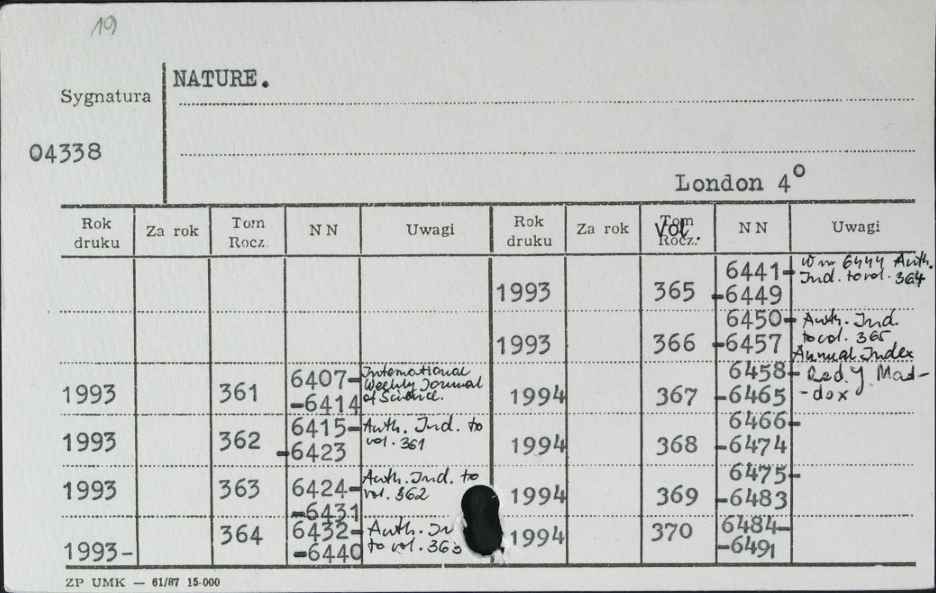 19
NATURE.
Sygnatura
04338
London 4°
Rok druku Za rok Tom Rocz. NN Uwagi Rok druku Za rok Tom Vol Rocz. NN Uwagi
1993 365 6441- -6449 W nr 6444 Auth. Ind. to vol. 364
1993 366 6450- -6457 Auth. Ind. to vol. 365 Annual Index
1993 361 6407- -6414 International Weekly Journal of Science. 1994 367 6458- -6465 Red. J. Mad- -dox
1993 362 6415- -6423 Auth. Ind. to vol. 361 1994 368 6466- -6474
1993 363 6424- -6431 Auth. Ind. to vol. 362 1994 369 6475- -6483
1993- 364 6432- -6440 Auth. In to vol. 363 1994 370 6484- -6491
ZP UMK — 61/87 15-000